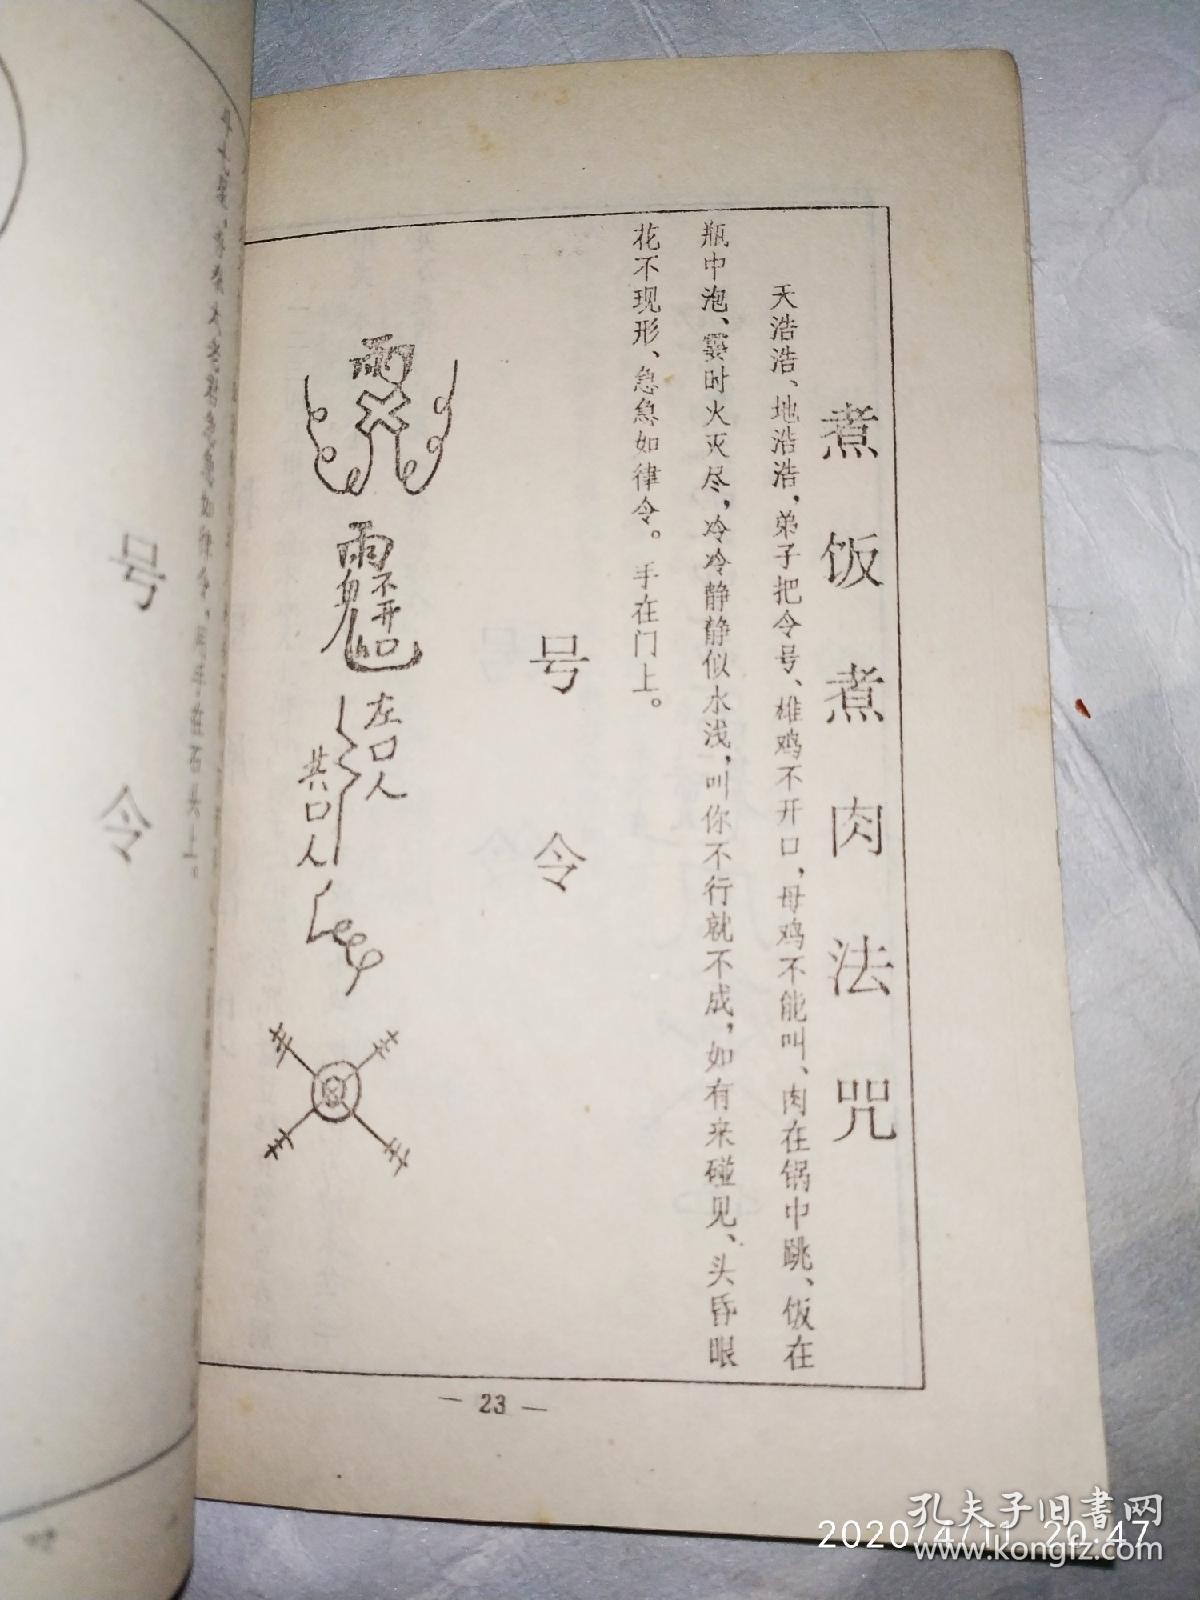 煮饭煮肉法咒
天浩浩、地浩浩，弟子把令号、雄鸡不开口，母鸡不能叫、肉在锅中跳、饭在
瓶中泡、霎时火灭尽，冷冷静静似水浅，叫你不行就不成，如有来碰见、头昏眼
花不现形、急急如律令。手在门上。
号令
雨
雨鬼
不开口
左口人
共口人
— 23 —
急急如律令，
手在石头上。
号令
孔夫子旧书网
2020/4/11 20:47
www.kongfz.com